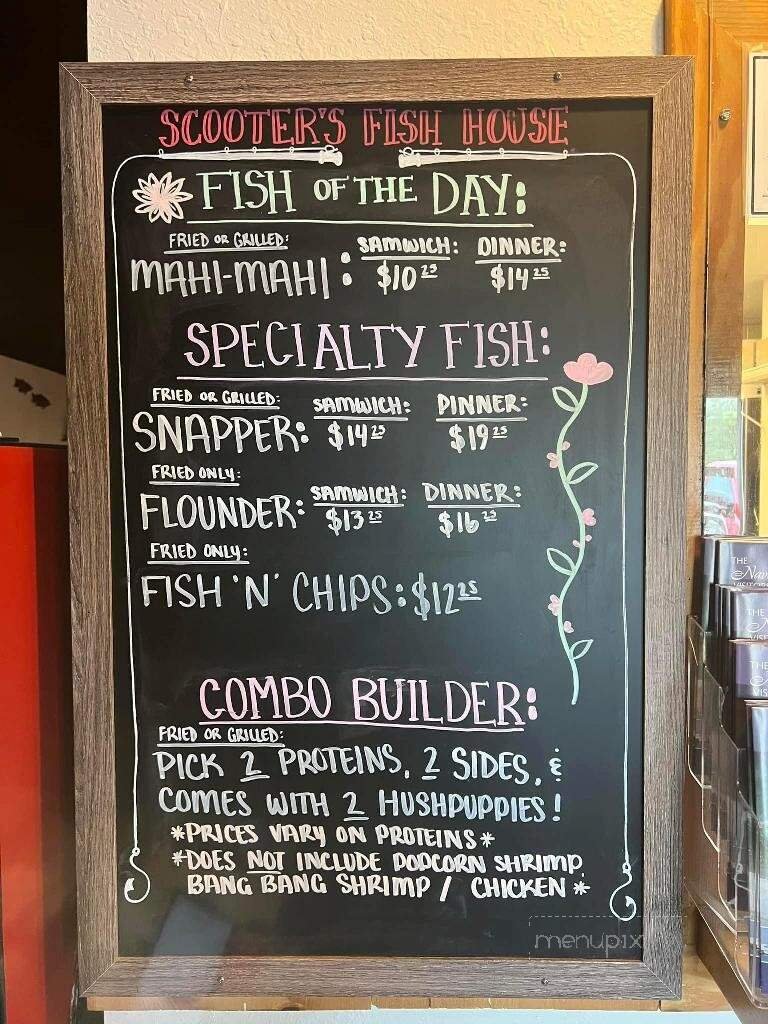 SCOOTER'S FISH HOUSE
FISH OF THE DAY:
FRIED OR GRILLED: SAMWICH: DINNER:
MAHI-MAHI: $10 25 $14 25
SPECIALTY FISH:
FRIED OR GRILLED: SAMWICH: DINNER:
SNAPPER: $14 25 $19 25
FRIED ONLY:
FLOUNDER: SAMWICH: DINNER:
$13 25 $16 25
FRIED ONLY:
FISH 'N' CHIPS: $12 25
COMBO BUILDER:
FRIED OR GRILLED:
PICK 2 PROTEINS, 2 SIDES, &
COMES WITH 2 HUSHPUPPIES!
*PRICES VARY ON PROTEINS*
*DOES NOT INCLUDE POPCORN SHRIMP,
BANG BANG SHRIMP / CHICKEN*
menupix
THE
THE
THE